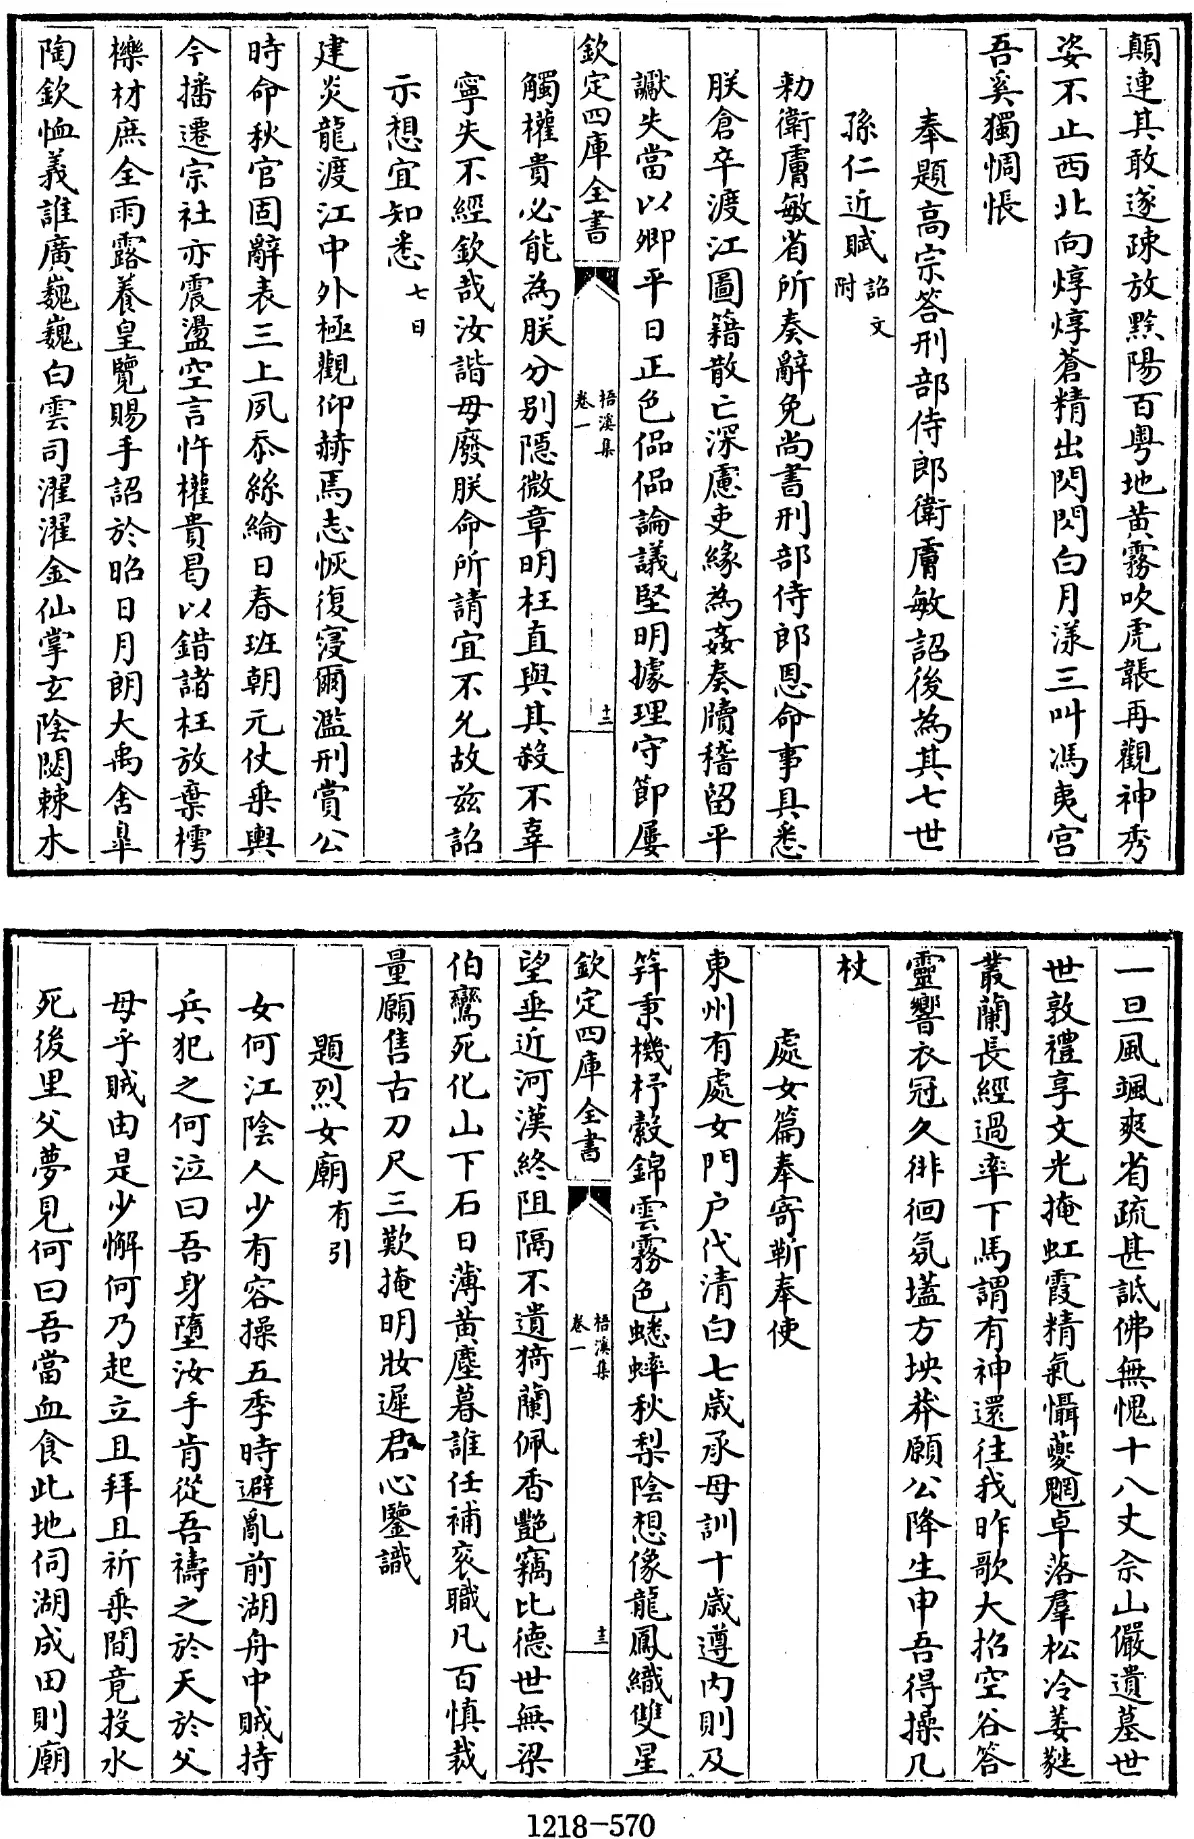 顛連其敢遂疎放黙陽百粤地黄霧吹虎韔再觀神秀
姿不止西北向焞焞蒼精出閃閃白月漾三叫馮夷宫
吾奚獨惆悵
奉題高宗答刑部侍郎衛膚敏詔後為其七世
孫仁近賦詔文附
勑衛膚敏省所奏辭免尚書刑部侍郎恩命事具悉
朕倉卒渡江圖籍散亡深慮吏緣為姦奏牘稽留平
讞失當以卿平日正色偘偘論議堅明據理守節屢
欽定四庫全書
梧溪集
卷一
十二
觸權貴必能為朕分别隱微章明枉直與其殺不辜
寧失不經欽哉汝諧毋廢朕命所請宜不允故兹詔
示想宜知悉七日
建炎龍渡江中外極觀仰赫焉志恢復寖爾濫刑賞公
時命秋官固辭表三上夙忝絲綸日春班朝元仗乗輿
今播遷宗社亦震盪空言忤權貴曷以錯諸枉放棄樗
櫟材庶全雨露養皇覽賜手詔於昭日月朗大禹舍臯
陶欽恤義誰廣巍巍白雲司濯濯金仙掌玄陰閟棘木
一旦風颯爽省疏甚詆佛無愧十八丈佘山儼遺墓世
世敦禮享文光掩虹霞精氣懾夔魍卓落羣松冷萋蕤
叢蘭長經過率下馬謂有神還往我昨歌大招空谷答
靈響衣冠久徘徊氛壒方坱莽願公降生申吾得操几
杖
處女篇奉寄靳奉使
東州有處女門户代清白七歲承母訓十歲遵内則及
笄秉機杼縠錦雲霧色蟋蟀秋梨陰想像龍鳳織雙星
欽定四庫全書
梧溪集
卷一
十三
望垂近河漢終阻隔不遺猗蘭佩香艶竊比德世無梁
伯鸞死化山下石日薄黄塵暮誰任補衮職凡百慎裁
量願售古刀尺三歎掩明妝遲君心鑒識
題烈女廟有引
女何江陰人少有容操五季時避亂前湖舟中賊持
兵犯之何泣曰吾身墮汝手肯從吾禱之於天於父
母乎賊由是少懈何乃起立且拜且祈乗間竟投水
死後里父夢見何曰吾當血食此地伺湖成田則廟
1218-570